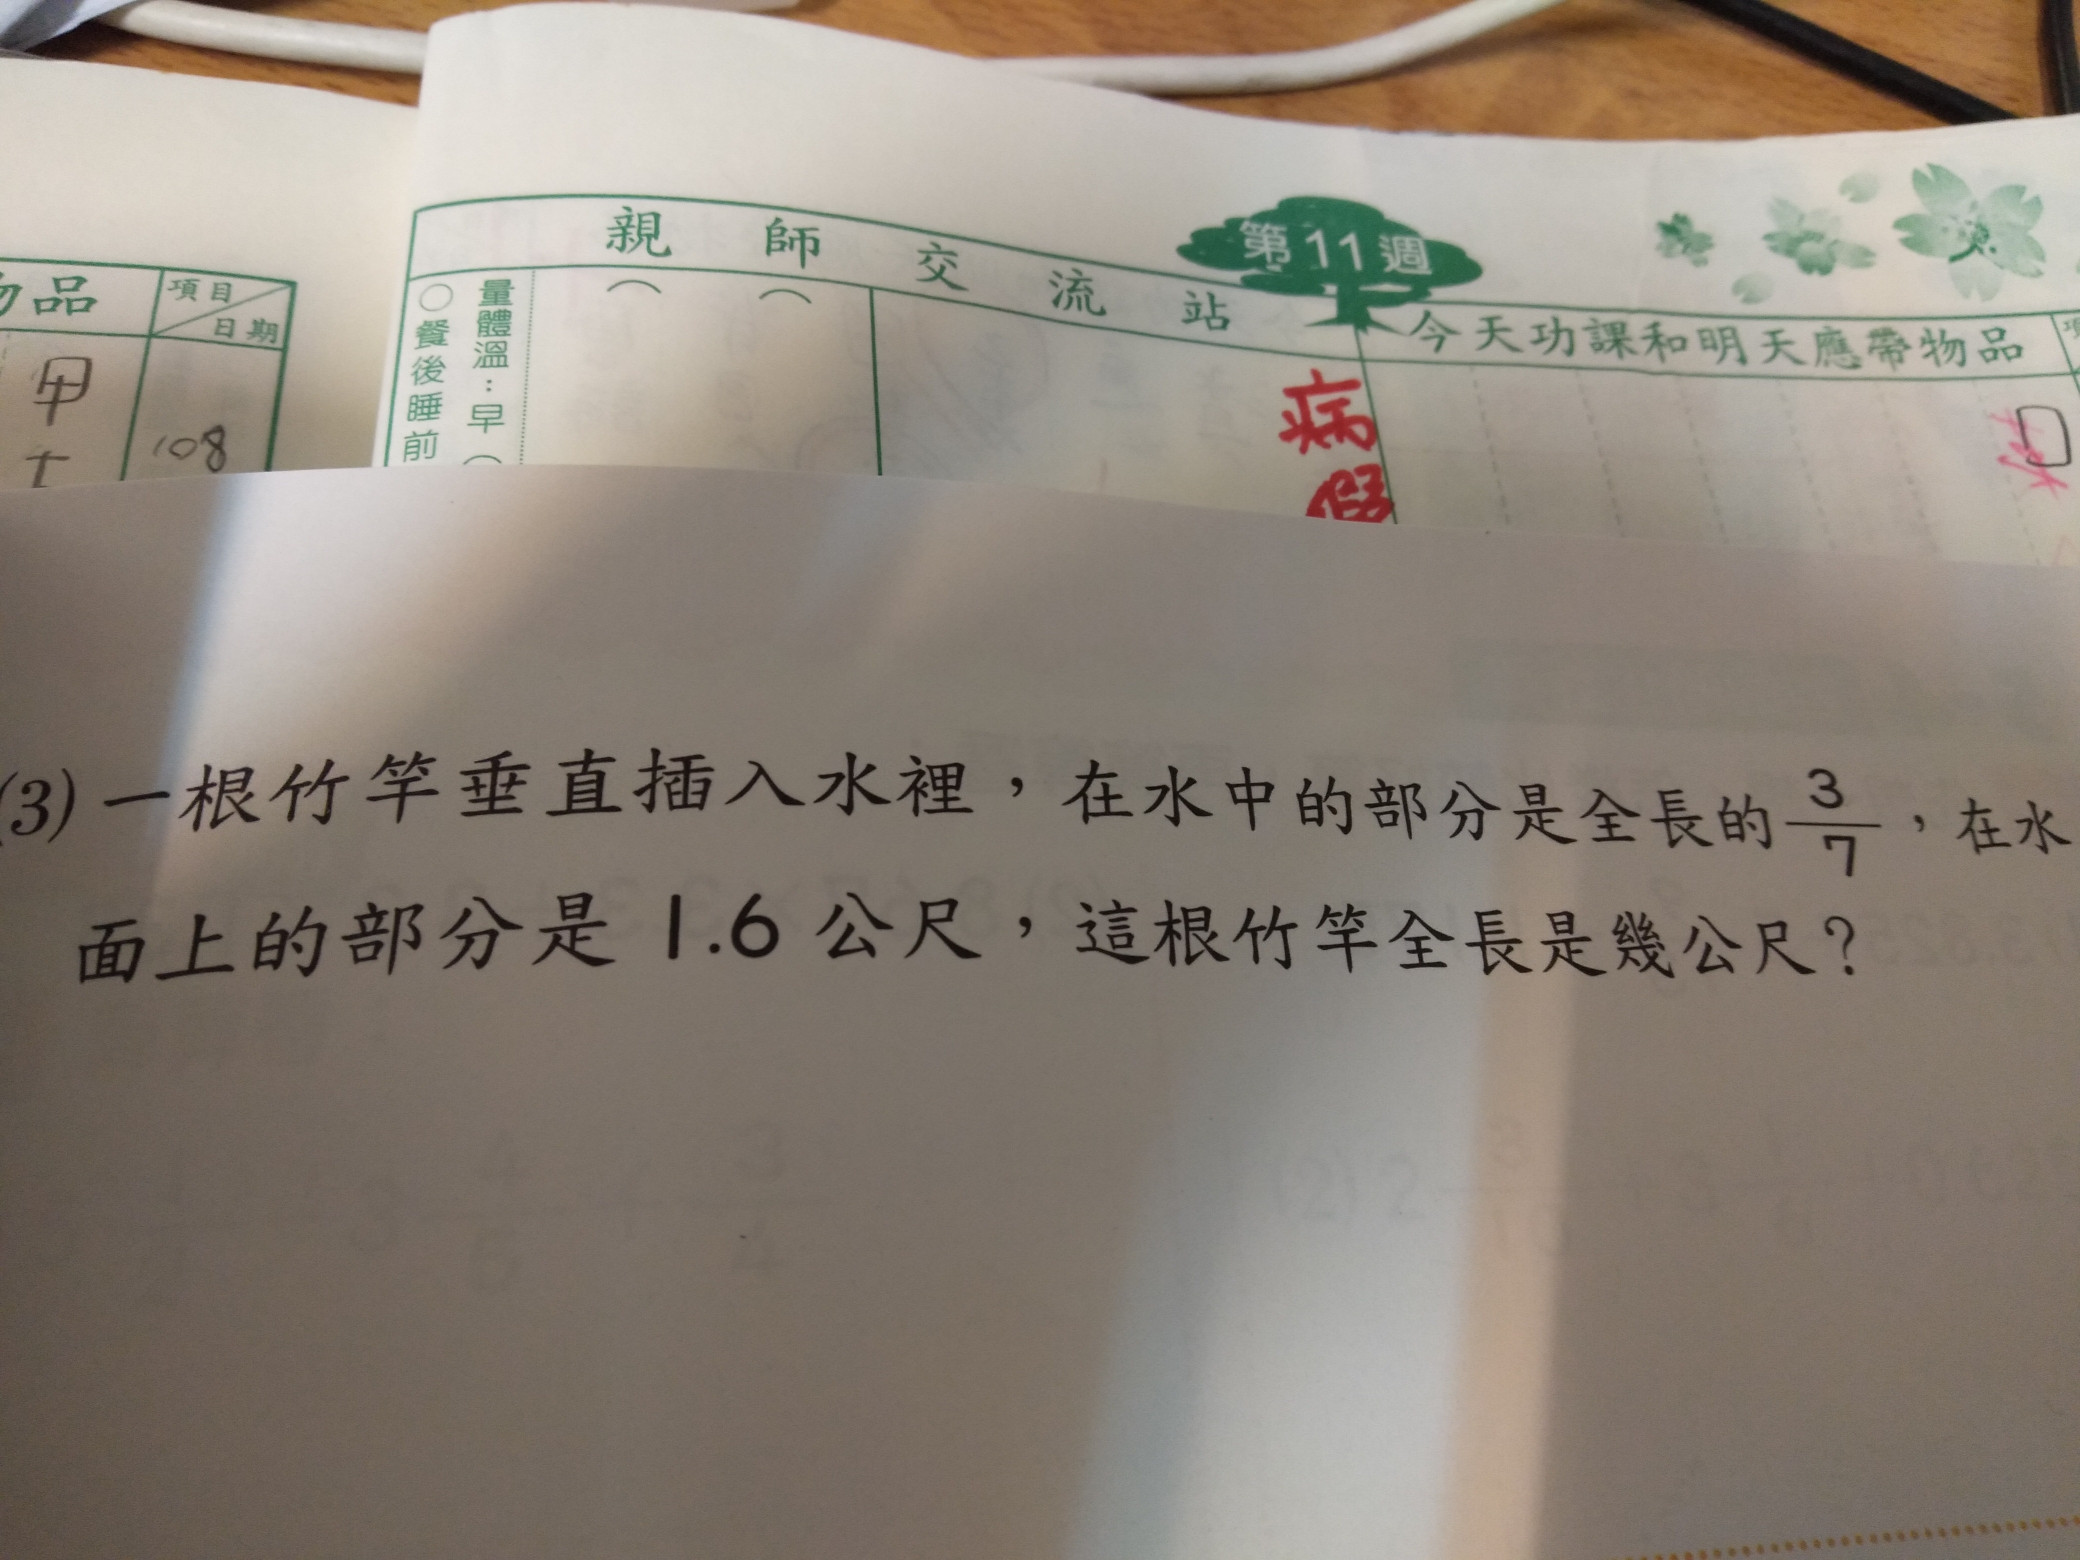 親師交流站
第11週
今天功課和明天應帶物品
物品
項目
日期
量體溫：早（
○餐後睡前
甲
108
病假
(3)一根竹竿垂直插入水裡，在水中的部分是全長的3/7，在水
面上的部分是1.6公尺，這根竹竿全長是幾公尺？